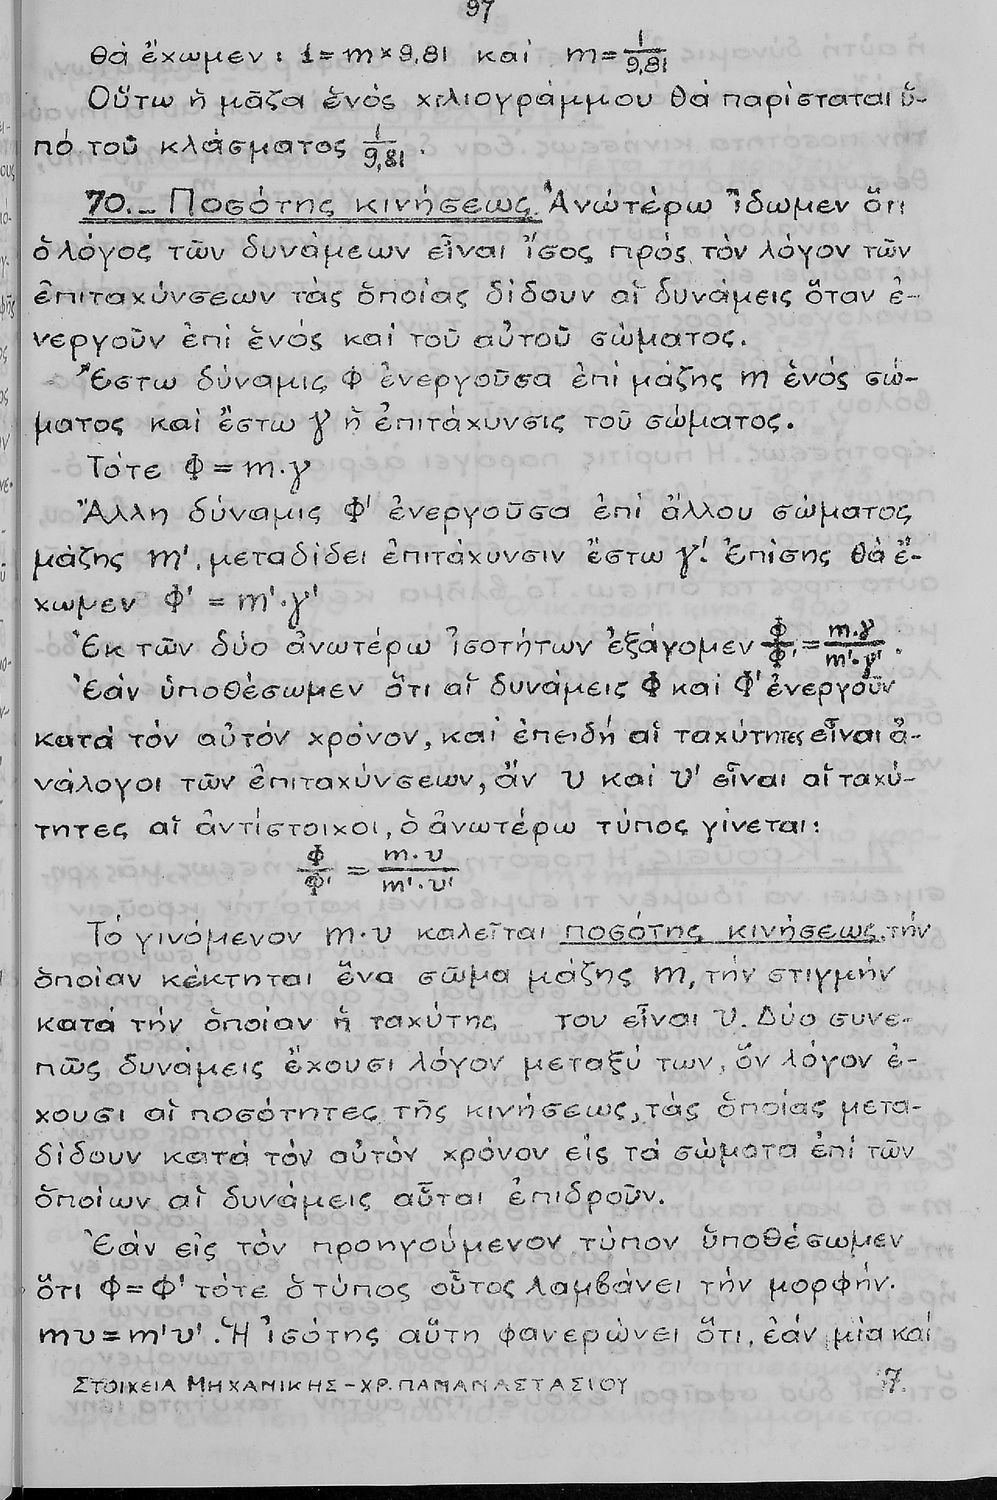 97
θά ἔχωμεν : 1 = m × 9,81 καί m = 1/9,81
Οὕτω ἡ μᾶζα ἑνός χιλιογράμμου θά παρίσταται ὑ-
πό τοῦ κλάσματος 1/9,81 .
70.– Ποσότης κινήσεως. Ἀνωτέρω ἴδωμεν ὅτι
ὁ λόγος τῶν δυνάμεων εἶναι ἴσος πρός τόν λόγον τῶν
ἐπιταχύνσεων τάς ὁποίας δίδουν αἱ δυνάμεις ὅταν ἐ-
νεργοῦν ἐπί ἑνός καί τοῦ αὐτοῦ σώματος.
Ἔστω δύναμις Φ ἐνεργοῦσα ἐπί μάζης m ἑνός σώ-
ματος καί ἔστω γ ἡ ἐπιτάχυνσις τοῦ σώματος.
Τότε Φ = m·γ
Ἄλλη δύναμις Φ' ἐνεργοῦσα ἐπί ἄλλου σώματος
μάζης m', μεταδίδει ἐπιτάχυνσιν ἔστω γ'. Ἐπίσης θά ἔ-
χωμεν Φ' = m'·γ'
Ἐκ τῶν δύο ἀνωτέρω ἰσοτήτων ἐξάγομεν Φ/Φ' = m·γ/m'·γ' .
Ἐάν ὑποθέσωμεν ὅτι αἱ δυνάμεις Φ καί Φ' ἐνεργοῦν
κατά τόν αὐτόν χρόνον, καί ἐπειδή αἱ ταχύτητες εἶναι ἀ-
νάλογοι τῶν ἐπιταχύνσεων, ἄν υ καί υ' εἶναι αἱ ταχύ-
τητες αἱ ἀντίστοιχοι, ὁ ἀνωτέρω τύπος γίνεται:
Φ/Φ' = m·υ/m'·υ'
Τό γινόμενον m·υ καλεῖται ποσότης κινήσεως, τήν
ὁποίαν κέκτηται ἕνα σῶμα μάζης m, τήν στιγμήν
κατά τήν ὁποίαν ἡ ταχύτης του εἶναι υ. Δύο συνε-
πῶς δυνάμεις ἔχουσι λόγον μεταξύ των, ὅν λόγον ἔ-
χουσι αἱ ποσότητες τῆς κινήσεως, τάς ὁποίας μετα-
δίδουν κατά τόν αὐτόν χρόνον εἰς τά σώματα ἐπί τῶν
ὁποίων αἱ δυνάμεις αὗται ἐπιδροῦν.
Ἐάν εἰς τόν προηγούμενον τύπον ὑποθέσωμεν
ὅτι Φ = Φ' τότε ὁ τύπος οὗτος λαμβάνει τήν μορφήν.
mυ = m'υ'. Ἡ ἰσότης αὕτη φανερώνει ὅτι, ἐάν μία καί
ΣΤΟΙΧΕΙΑ ΜΗΧΑΝΙΚΗΣ – ΧΡ. ΠΑΠΑΝΑΣΤΑΣΙΟΥ 7.